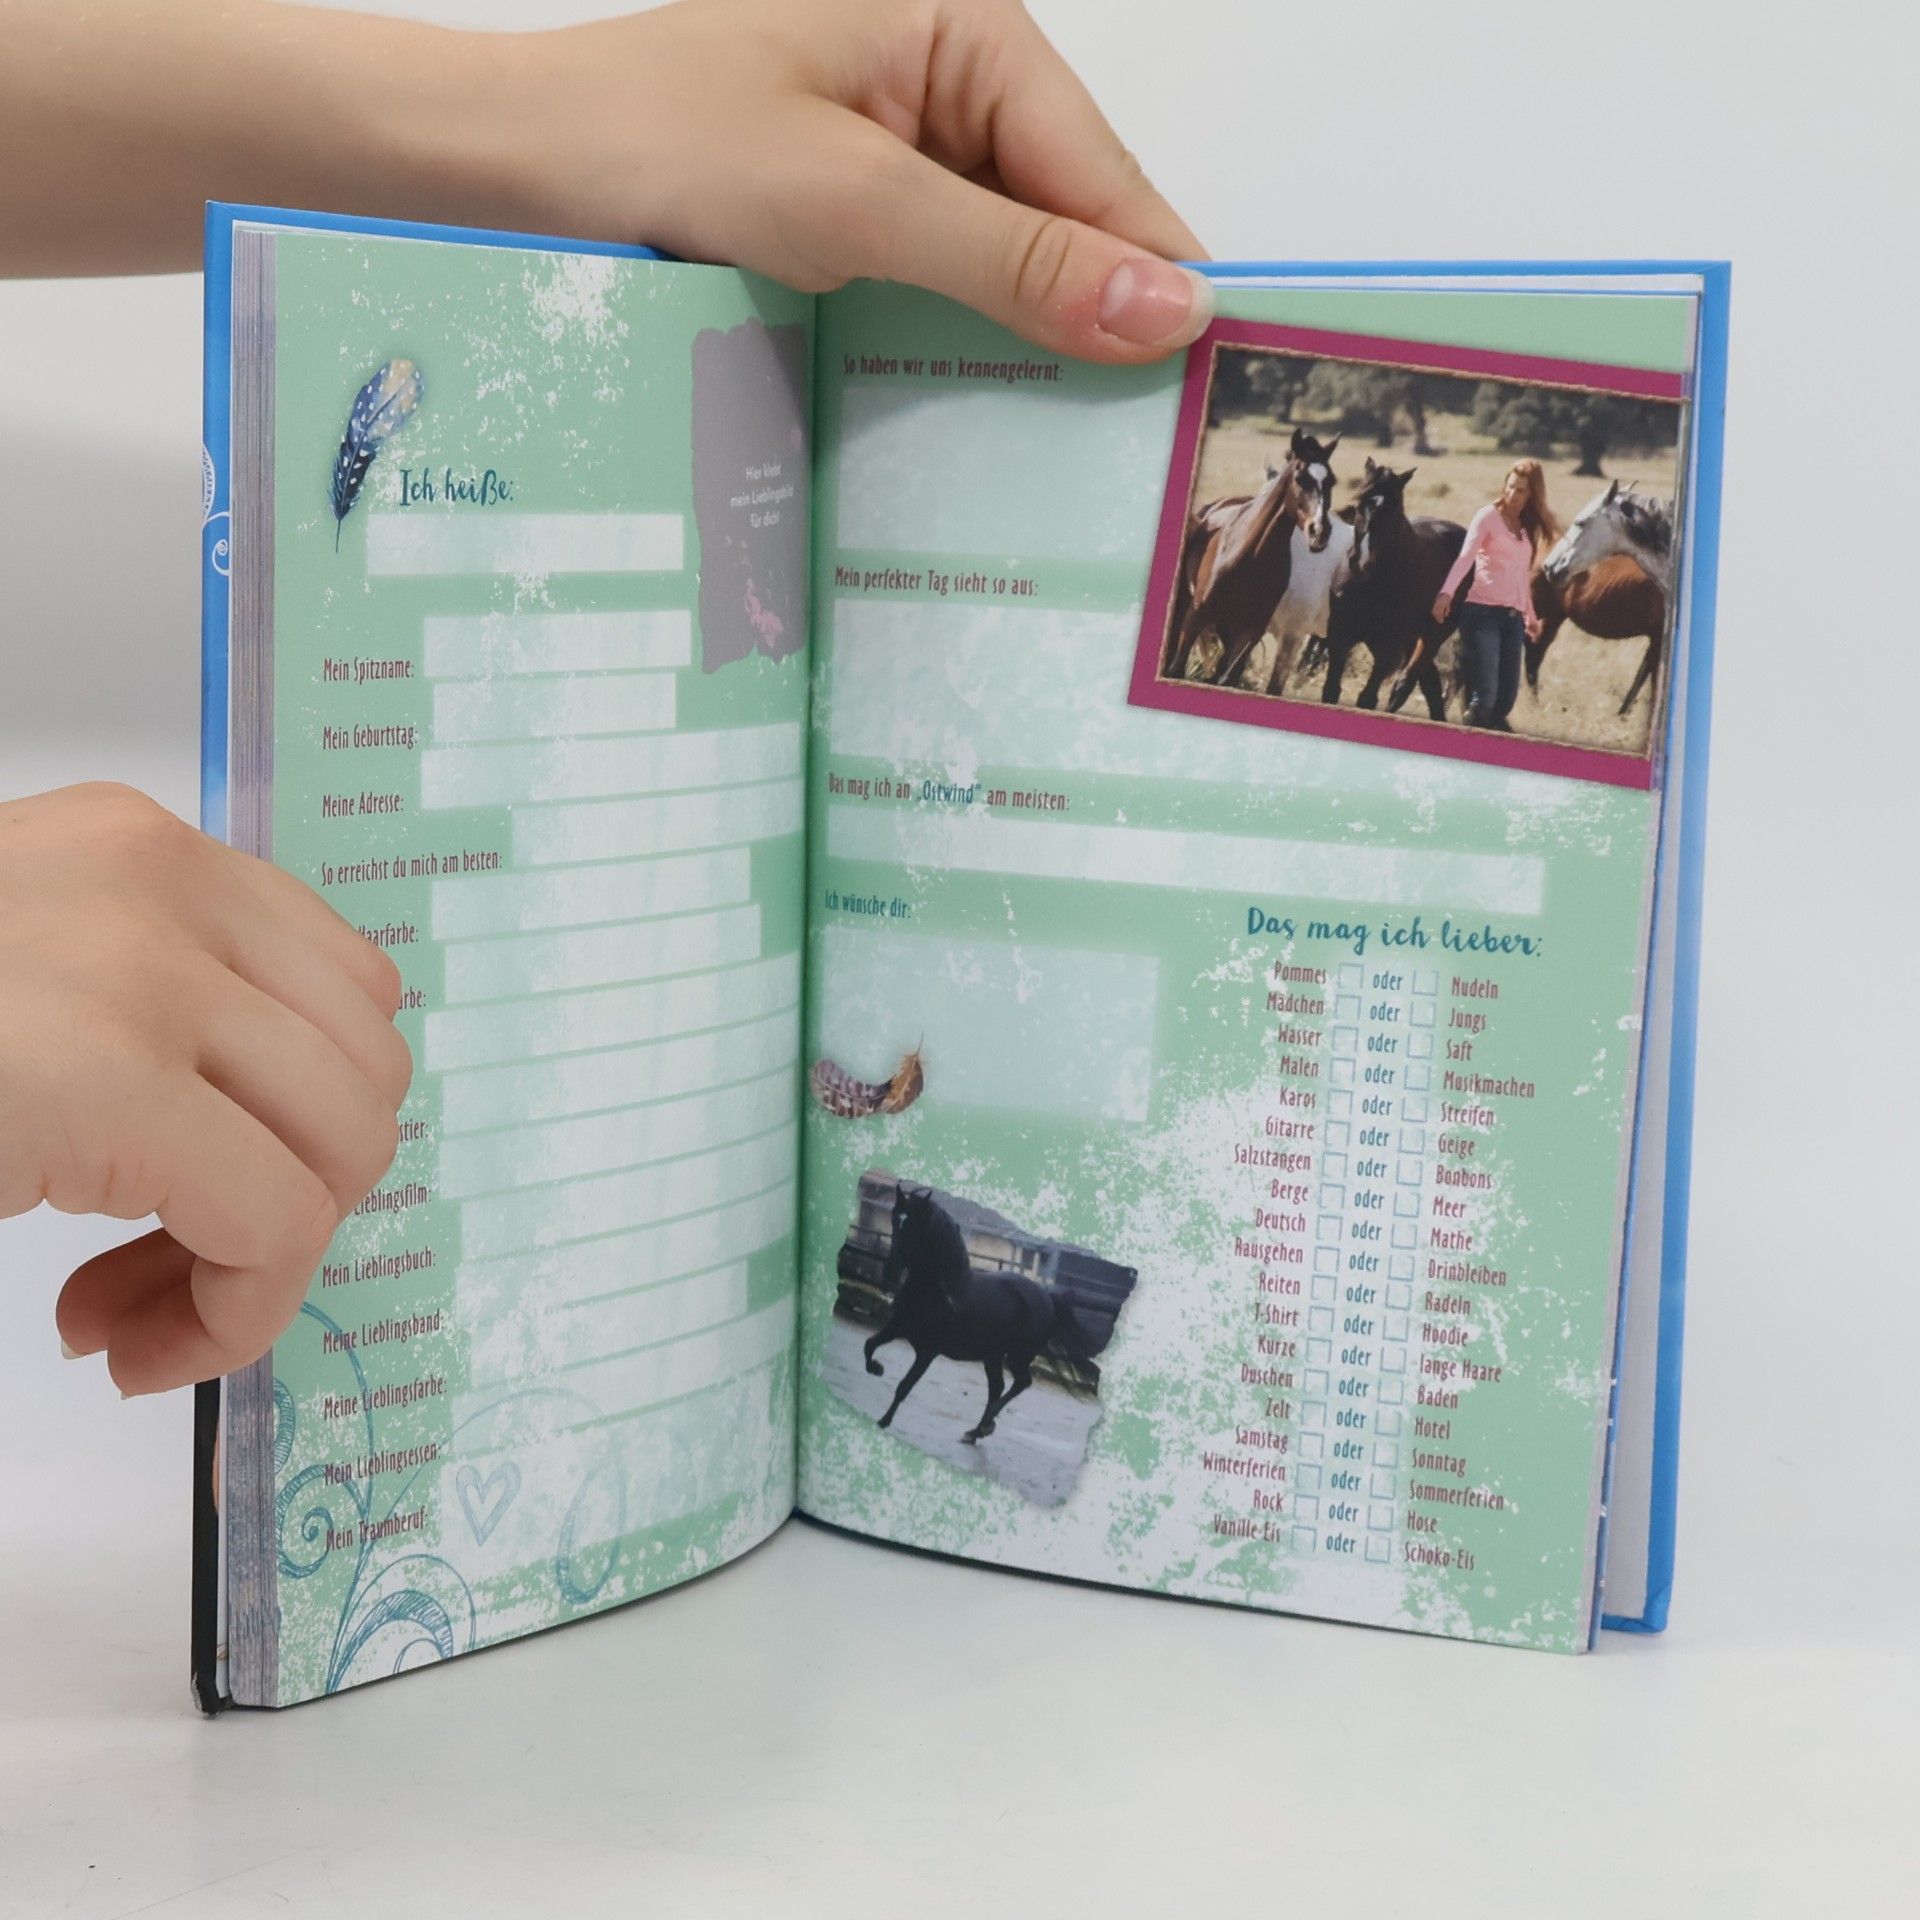 Ich heiße:
Hier klebt
mein Lieblingsbild
für dich!
Mein Spitzname:
Mein Geburtstag:
Meine Adresse:
So erreichst du mich am besten:
Haarfarbe:
arbe:
stier:
Lieblingsfilm:
Mein Lieblingsbuch:
Meine Lieblingsband:
Meine Lieblingsfarbe:
Mein Lieblingsessen:
Mein Traumberuf:
So haben wir uns kennengelernt:
Mein perfekter Tag sieht so aus:
Das mag ich an „Ostwind“ am meisten:
Ich wünsche dir:
Das mag ich lieber:
Pommes oder Nudeln
Mädchen oder Jungs
Wasser oder Saft
Malen oder Musikmachen
Karos oder Streifen
Gitarre oder Geige
Salzstangen oder Bonbons
Berge oder Meer
Deutsch oder Mathe
Rausgehen oder Drinbleiben
Reiten oder Radeln
T-Shirt oder Hoodie
Kurze oder lange Haare
Duschen oder Baden
Zelt oder Hotel
Samstag oder Sonntag
Winterferien oder Sommerferien
Rock oder Hose
Vanille-Eis oder Schoko-Eis